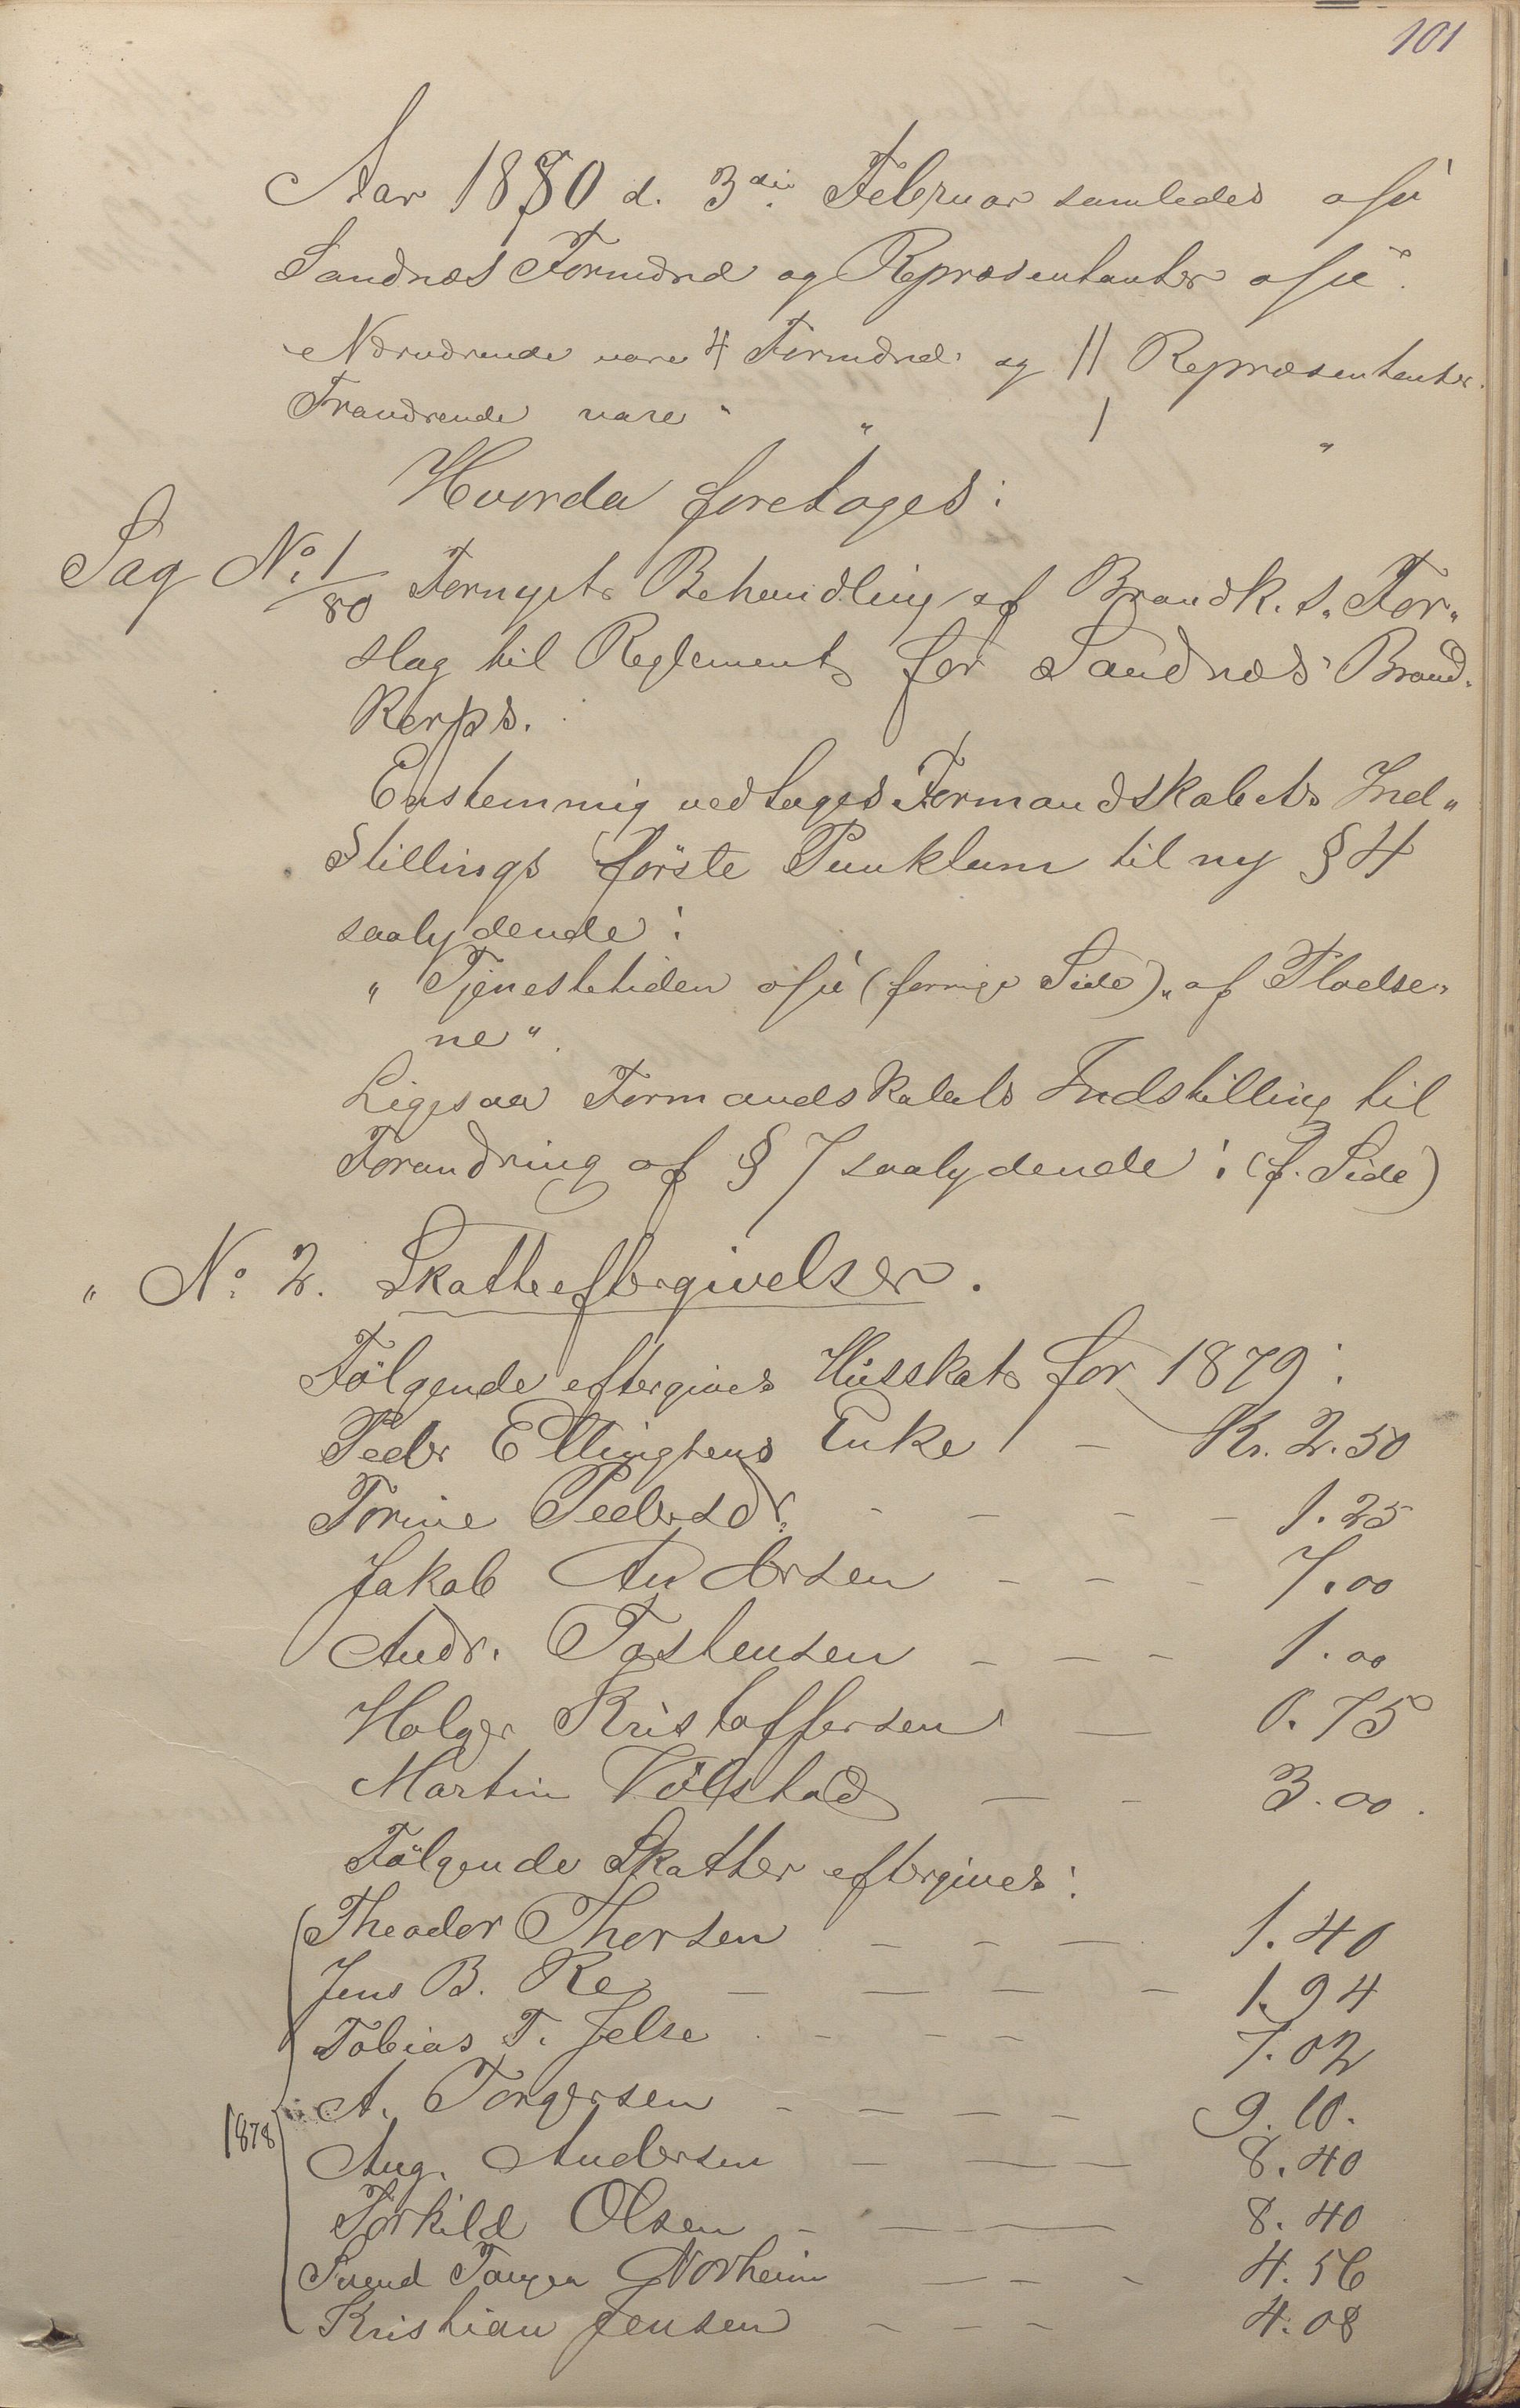 101
Aar 1880 d. 3die Februar samledes
Sandnæs Formænd og Repræsentanter
Nærværende vare 4 Formænd og 11 Repræsentanter.
Fraværende vare " " 1 "
Hvorda foretages:
Sag No. 1/80 Fornyet Behandling af Brandk.s. For„
slag til Reglement for Sandnæs Brand„
korps.
Enstemmig vedtages Formandskabets Ind„
stillings förste Punktum til ny § 4
saalydende:
„Tjenestetiden (forrige Side)„ af
ne".
Ligesaa Formandskabets Indstilling til
Forandring af § 7 saalydende: (f. Side)
„ No. 2. Skatteeftergivelser.
Fölgende eftergives Husskat for 1879:
Peder Ellingsens Enke – Kr. 2.50
Torine Pedersdr. – – – – 1.25
Jakob Andersen – – – 7.00
Andr. Tostensen – – – 1.00
Holger Kristoffersen — 0.75
Martin Völstad — – 3.00.
Fölgende Skatter eftergives:
Theodor Thorsen – – — 1.40
Jens B. Re – — – – 1.94
Tobias T. Jelse – – – 7.02
A. Torgersen – – – – 9.10.
1878 Aug. Andersen – — — 8.40
Torkild Olsen – — — 8.40
Svend Norheim — – – 4.56
Kristian Jensen – – – 4.08